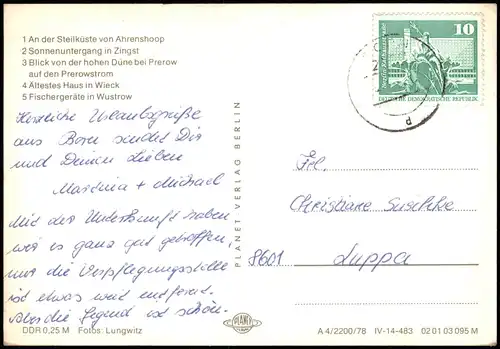 1 An der Steilküste von Ahrenshoop
2 Sonnenuntergang in Zingst
3 Blick von der hohen Düne bei Prerow
auf den Prerowstrom
4 Ältestes Haus in Wieck
5 Fischergeräte in Wustrow
Herzliche Urlaubsgrüße
aus Born sendet Dir
und Deinen Lieben
Martina + Michael
Mit der Unterkunft haben
wir es ganz gut getroffen,
nur die Verpflegungsstelle
ist etwas weit entfernt.
Aber die Gegend ist schön.
DDR 0,25 M Fotos: Lungwitz
PLANET VERLAG BERLIN
PLANET
10
DEUTSCHE DEMOKRATISCHE REPUBLIK
d
Frl.
Christiane
8601 Luppa
A 4/2200/78 IV-14-483 02 01 03 095 M